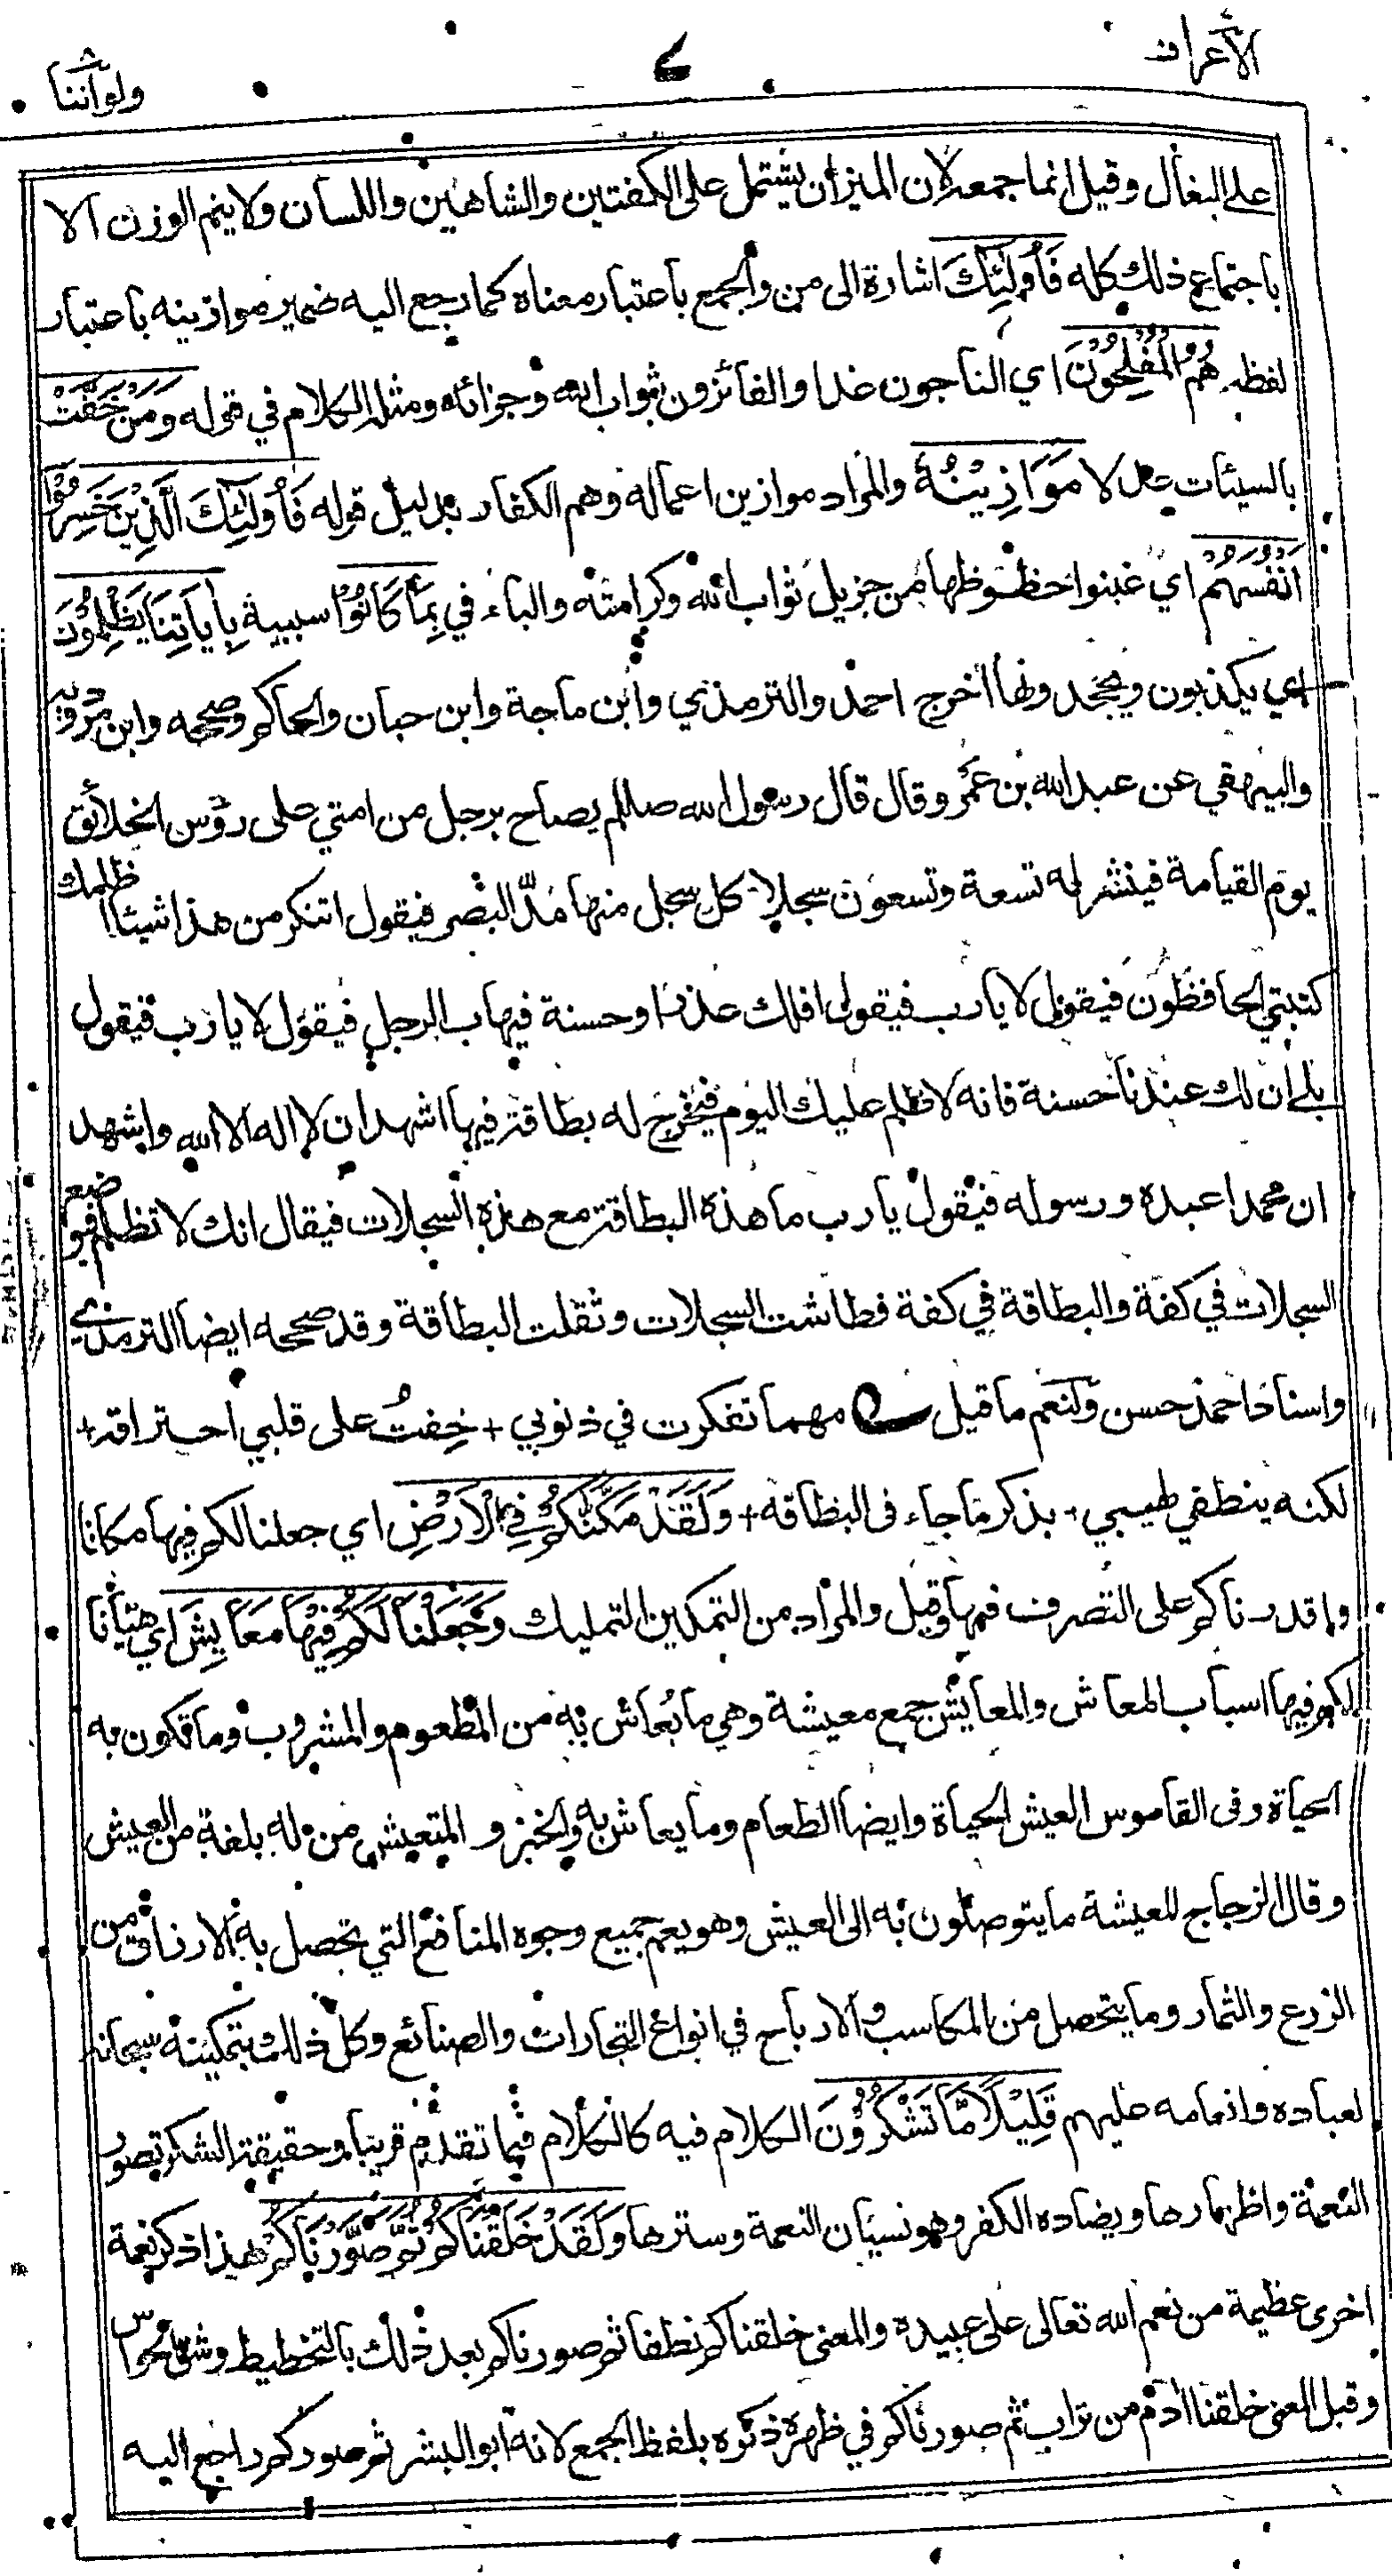 الأعراف
٧
ولو أننا ٨
على البغال وقيل انما جمعه لان الميزان يشتمل على الكفتين والشاهين واللسان ولا يتم الوزن الا
باجتماع ذلك كله فَأُولَٰئِكَ اشارة الى من والجمع باعتبار معناه كما رجع اليه ضمير موازينه باعتبار
لفظه هُمُ الْمُفْلِحُوْنَ اي الناجون غدا والفائزون بثواب الله وجزائه ومثله الكلام في قوله وَمَنْ خَفَّتْ
بالسيئات عدلا مَوَازِيْنُهُ والمراد موازين اعماله وهم الكفار بدليل قوله فَأُولَٰئِكَ الَّذِيْنَ خَسِرُوْا
اَنْفُسَهُمْ اي غبنوا حظوظها من جزيل ثواب الله وكرامته والباء في بِمَا كَانُوْا سببية بِاٰيَاتِنَا يَظْلِمُوْنَ
اي يكذبون ويجحدونها اخرج احمد والترمذي وابن ماجة وابن حبان والحاكم وصححه وابن مردويه
والبيهقي عن عبد الله بن عمرو قال قال رسول الله صللم يصاح برجل من امتي على رؤس الخلائق
يوم القيامة فينشر له تسعة وتسعون سجلا كل سجل منها مدّ البصر فيقول اتنكر من هذا شيئا اظلمك
كتبتي الحافظون فيقول لا يارب فيقول افلك عذر او حسنة فيهاب الرجل فيقول لا يارب فيقول
بلى ان لك عندنا حسنة فانه لا ظلم عليك اليوم فيخرج له بطاقة فيها اشهد ان لا اله الا الله واشهد
ان محمدا عبده ورسوله فيقول يارب ما هذه البطاقة مع هذه السجلات فيقال انك لا تظلم فيوضع
السجلات في كفة والبطاقة في كفة فطاشت السجلات وثقلت البطاقة وقد صححه ايضا الترمذي
واسناد احمد حسن ولنعم ما قيل مهما تفكرت في ذنوبي + خِفتُ على قلبي احتراقه +
لكنه ينطفي لهيبي + بذكر ما جاء في البطاقه + وَلَقَدْ مَكَّنّٰكُمْ فِي الْاَرْضِ اي جعلنا لكم فيها مكانا
واقدرناكم على التصرف فيها وقيل والمراد من التمكين التمليك وَجَعَلْنَا لَكُمْ فِيْهَا مَعَايِشَ اي هيأنا
لكم فيها اسباب المعاش والمعايش جمع معيشة وهي ما يُعاش به من المطعوم والمشروب وما تكون به
الحياة وفي القاموس العيش الحياة وايضا الطعام وما يعاش به والخبز و المتعيش من له بلغة من العيش
وقال الزجاج المعيشة ما يتوصلون به الى العيش وهو يعم جميع وجوه المنافع التي تحصل به الارزاق من
الزرع والثمار وما يتحصل من المكاسب والارباح في انواع التجارات والصنائع وكل ذلك بتمكينه سبحانه
لعباده وانعامه عليهم قَلِيْلًا مَّا تَشْكُرُوْنَ الكلام فيه كالكلام فيما تقدم قريبا وحقيقة الشكر تصور
النعمة واظهارها ويضاده الكفر وهو نسيان النعمة وسترها وَلَقَدْ خَلَقْنَاكُمْ ثُمَّ صَوَّرْنَاكُمْ هذا ذكر نعمة
اخرى عظيمة من نعم الله تعالى على عبيده والمعنى خلقناكم نطفا ثم صورناكم بعد ذلك بالتخطيط وشق الحواس
وقيل المعنى خلقنا ادم من تراب ثم صورناكم في ظهره ذكره بلفظ الجمع لانه ابو البشر ثم صوركم راجع اليه